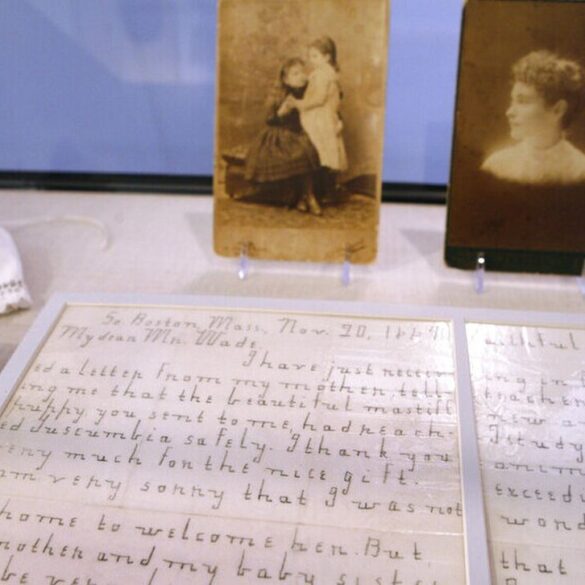 So. Boston, Mass. Nov. 20, 1889
My dear Mr. Wade,
I have just receiv-
ed a letter from my mother, tell-
ing me that the beautiful mastiff
puppy you sent to me, had reach-
ed duscumbia safely. I thank you
very much for the nice gift.
am very sorry that I was not
home to welcome her. But
mother and my baby siste
be ver
aithful
teacher
I study
anim
exceed
wond
that